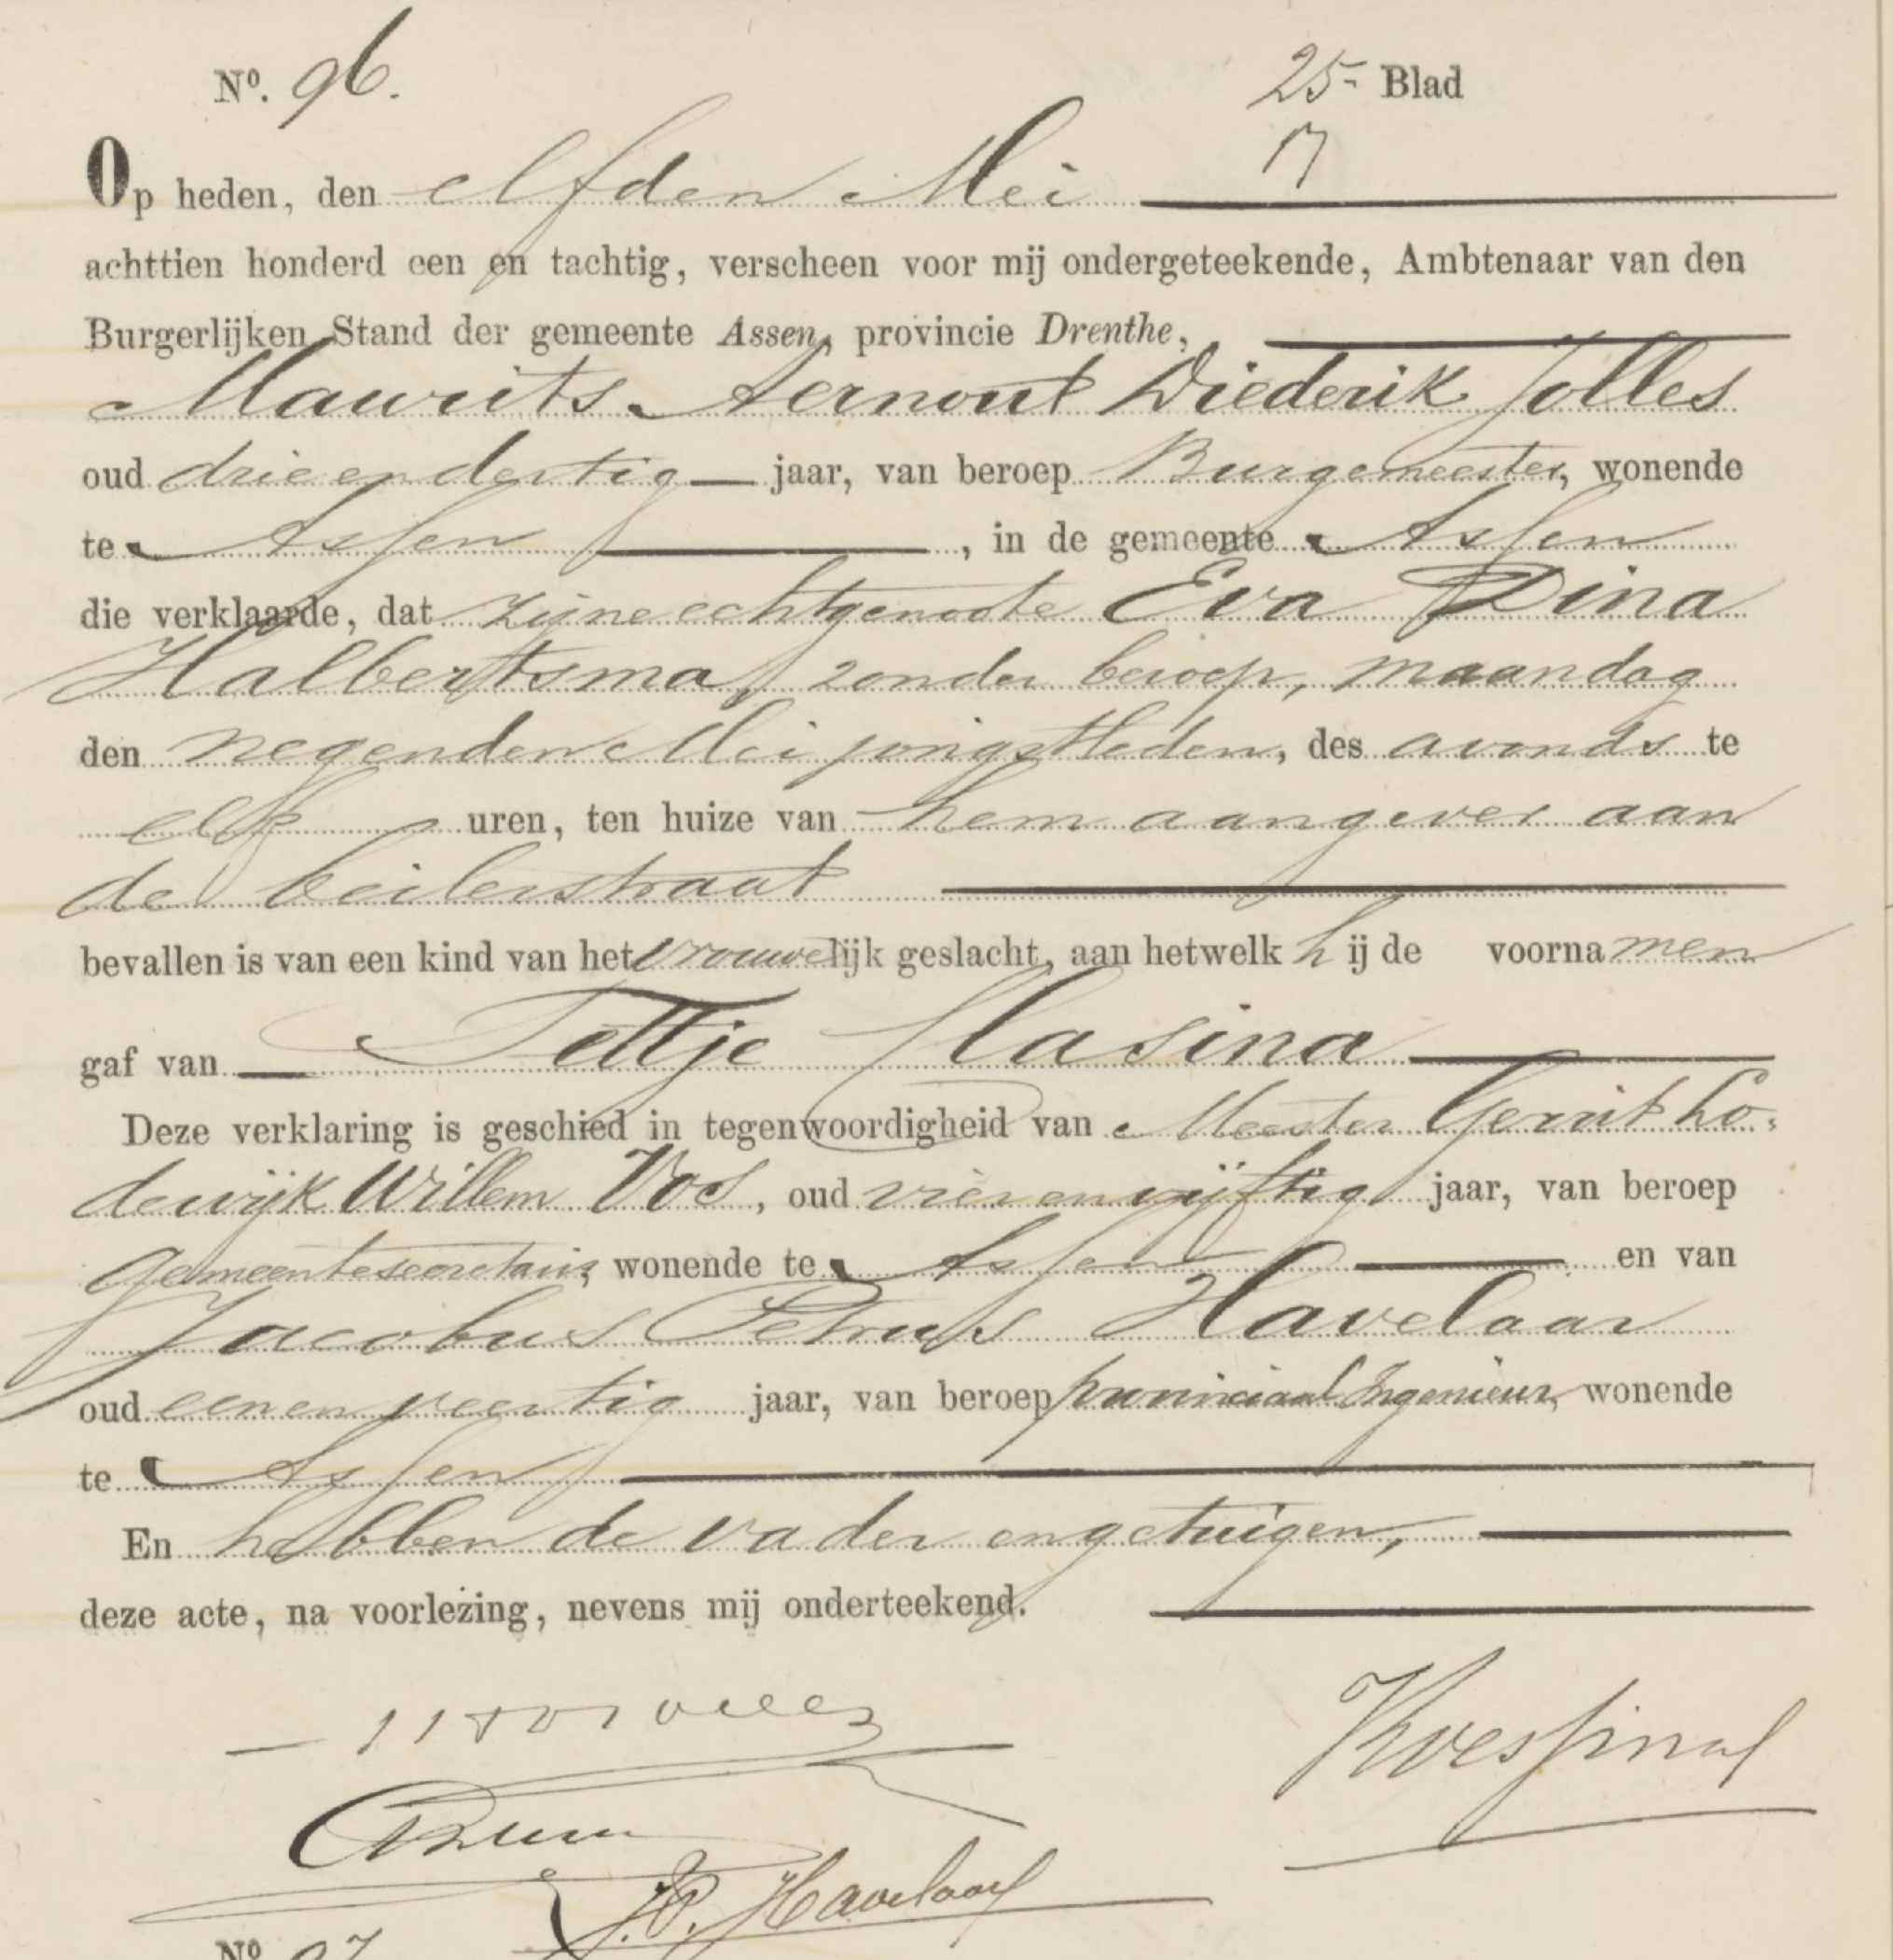 Nº. 96.
25 Blad
17
Op heden, den elfden Mei
achttien honderd een en tachtig, verscheen voor mij ondergeteekende, Ambtenaar van den
Burgerlijken Stand der gemeente Assen, provincie Drenthe,
Maurits Aernout Diederik Jolles
oud drie en dertig jaar, van beroep Burgemeester, wonende
te Assen, in de gemeente Assen
die verklaarde, dat zijne echtgenoote Eva Dina
Halbertsma, zonder beroep, maandag
den negenden Mei jongstleden, des avonds te
elf uren, ten huize van hem aangever aan
de beilerstraat
bevallen is van een kind van het vrouwelijk geslacht, aan hetwelk hij de voornamen
gaf van Tettje Clasina
Deze verklaring is geschied in tegenwoordigheid van Meester Gerrit Lo-
dewijk Willem Vos, oud vier en vijftig jaar, van beroep
Gemeentesecretaris, wonende te Assen en van
Jacobus Petrus Havelaar
oud een en veertig jaar, van beroep provinciaal Ingenieur, wonende
te Assen
En hebben de vader en getuigen,
deze acte, na voorlezing, nevens mij onderteekend.
J.P. Havelaar
Nº 97